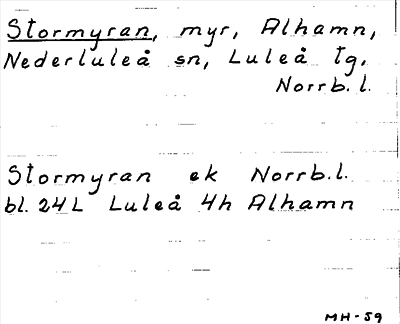 Stormyran, myr, Alhamn,
Nederluleå sn, Luleå tg.
Norrb. l.
Stormyran ek Norrb.l.
bl. 24L Luleå 4h Alhamn
MH-59